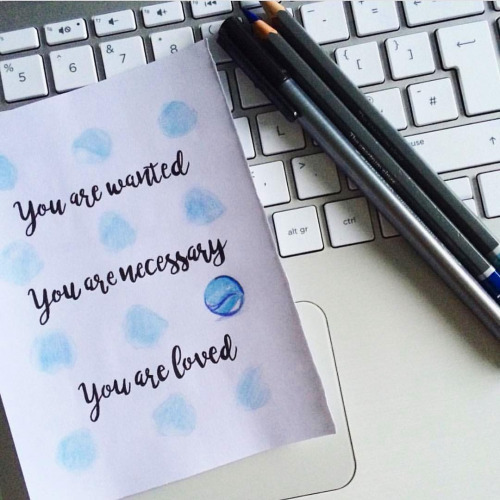 You are wanted
You are necessary
You are loved
5
%
6
^
7
&
8
*
[
{
]
}
#
~
alt gr
ctrl